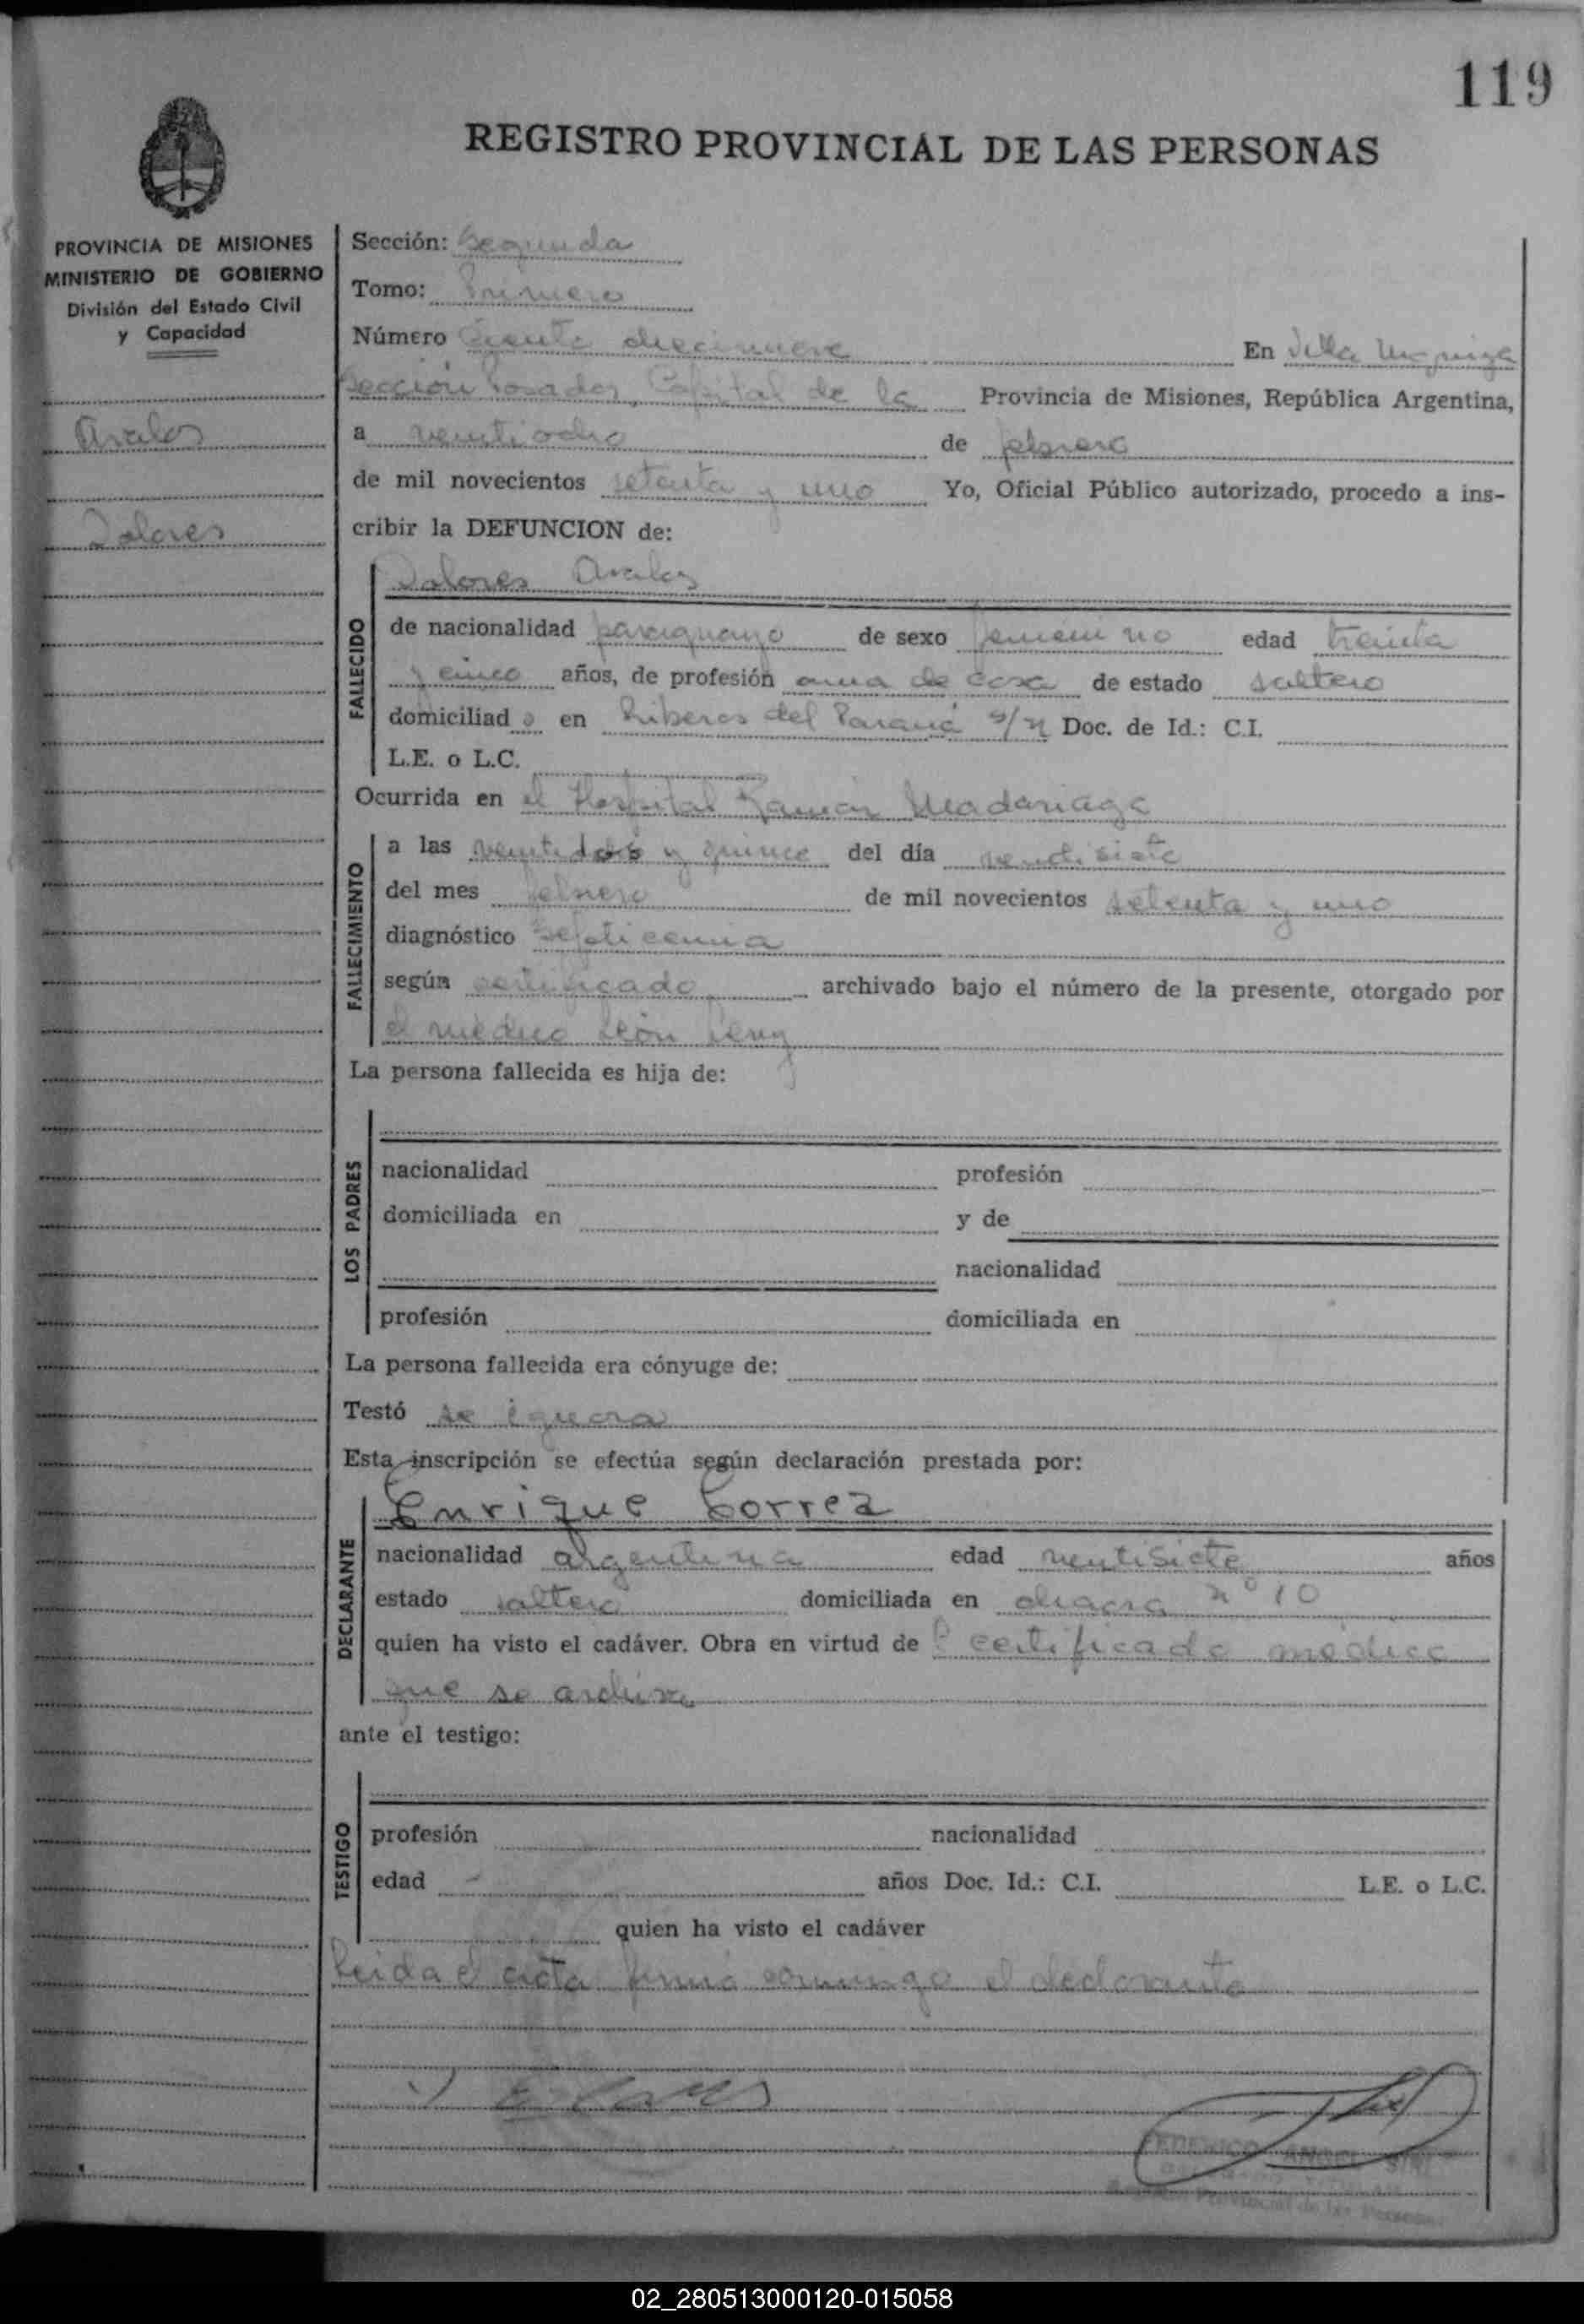 119
REGISTRO PROVINCIAL DE LAS PERSONAS
PROVINCIA DE MISIONES
MINISTERIO DE GOBIERNO
División del Estado Civil
y Capacidad
Avalos
Dolores
Sección: Segunda
Tomo: Primero
Número Ciento diecinueve En Villa Urquiza
Sección Posadas, Capital de la Provincia de Misiones, República Argentina,
a veintiocho de febrero
de mil novecientos setenta y uno Yo, Oficial Público autorizado, procedo a ins-
cribir la DEFUNCION de:
FALLECIDO
Dolores Avalos
de nacionalidad paraguaya de sexo femenino edad treinta
y cinco años, de profesión ama de casa de estado soltero
domiciliad o en Riberas del Paraná s/n Doc. de Id.: C.I.
L.E. o L.C.
Ocurrida en el Hospital Ramón Madariaga
FALLECIMIENTO
a las veintidós y quince del día veintisiete
del mes febrero de mil novecientos setenta y uno
diagnóstico Septicemia
según certificado archivado bajo el número de la presente, otorgado por
el médico León
La persona fallecida es hija de:
LOS PADRES
nacionalidad profesión
domiciliada en y de
nacionalidad
profesión domiciliada en
La persona fallecida era cónyuge de:
Testó se ignora
Esta inscripción se efectúa según declaración prestada por:
DECLARANTE
Enrique Correa
nacionalidad argentina edad ventisiete años
estado soltero domiciliada en chacra nº 10
quien ha visto el cadáver. Obra en virtud de certificado médico
que se archiva
ante el testigo:
TESTIGO
profesión nacionalidad
edad años Doc. Id.: C.I. L.E. o L.C.
quien ha visto el cadáver
Leida el acta firmó conmigo el declarante
FEDERICO ANGEL
Registro Provincial de las Personas
02_280513000120-015058